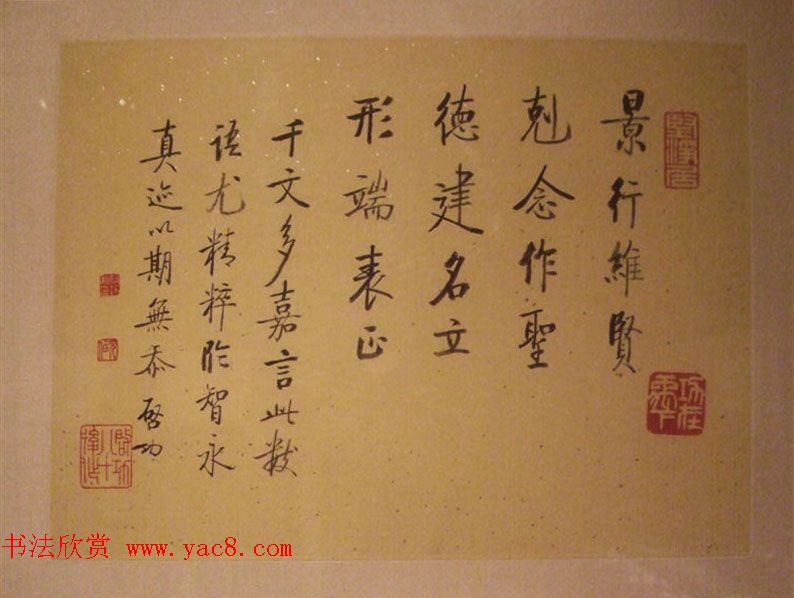 景行維賢
剋念作聖
德建名立
形端表正
千文多嘉言此數
語尤精粹臨智永
真迹以期無忝啓功
书法欣赏 www.yac8.com